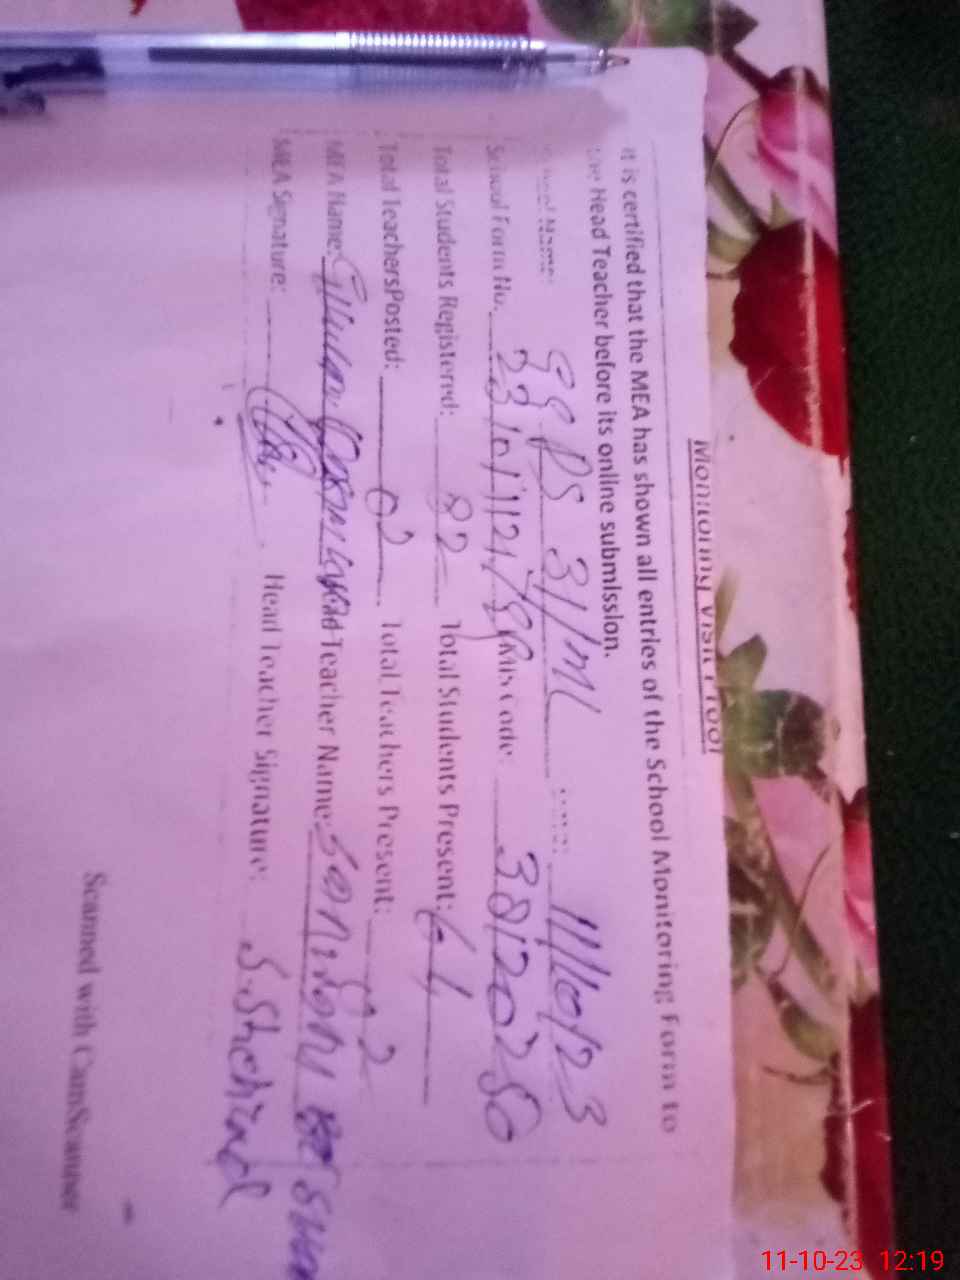 Monitoring Visit Proof
It is certified that the MEA has shown all entries of the School Monitoring Form to
the Head Teacher before its online submission.
Name: GGPS 31/ML 11/10/23
School Form No. Code 38120250
Total Students Registered: 82 Total Students Present: 64
Total Teachers Posted: 02 Total Teachers Present: 02
MEA Name: Ghulam Teacher Name:
MEA Signature: Head Teacher Signature: S.Shehzad
Scanned with CamScanner
11-10-23 12:19